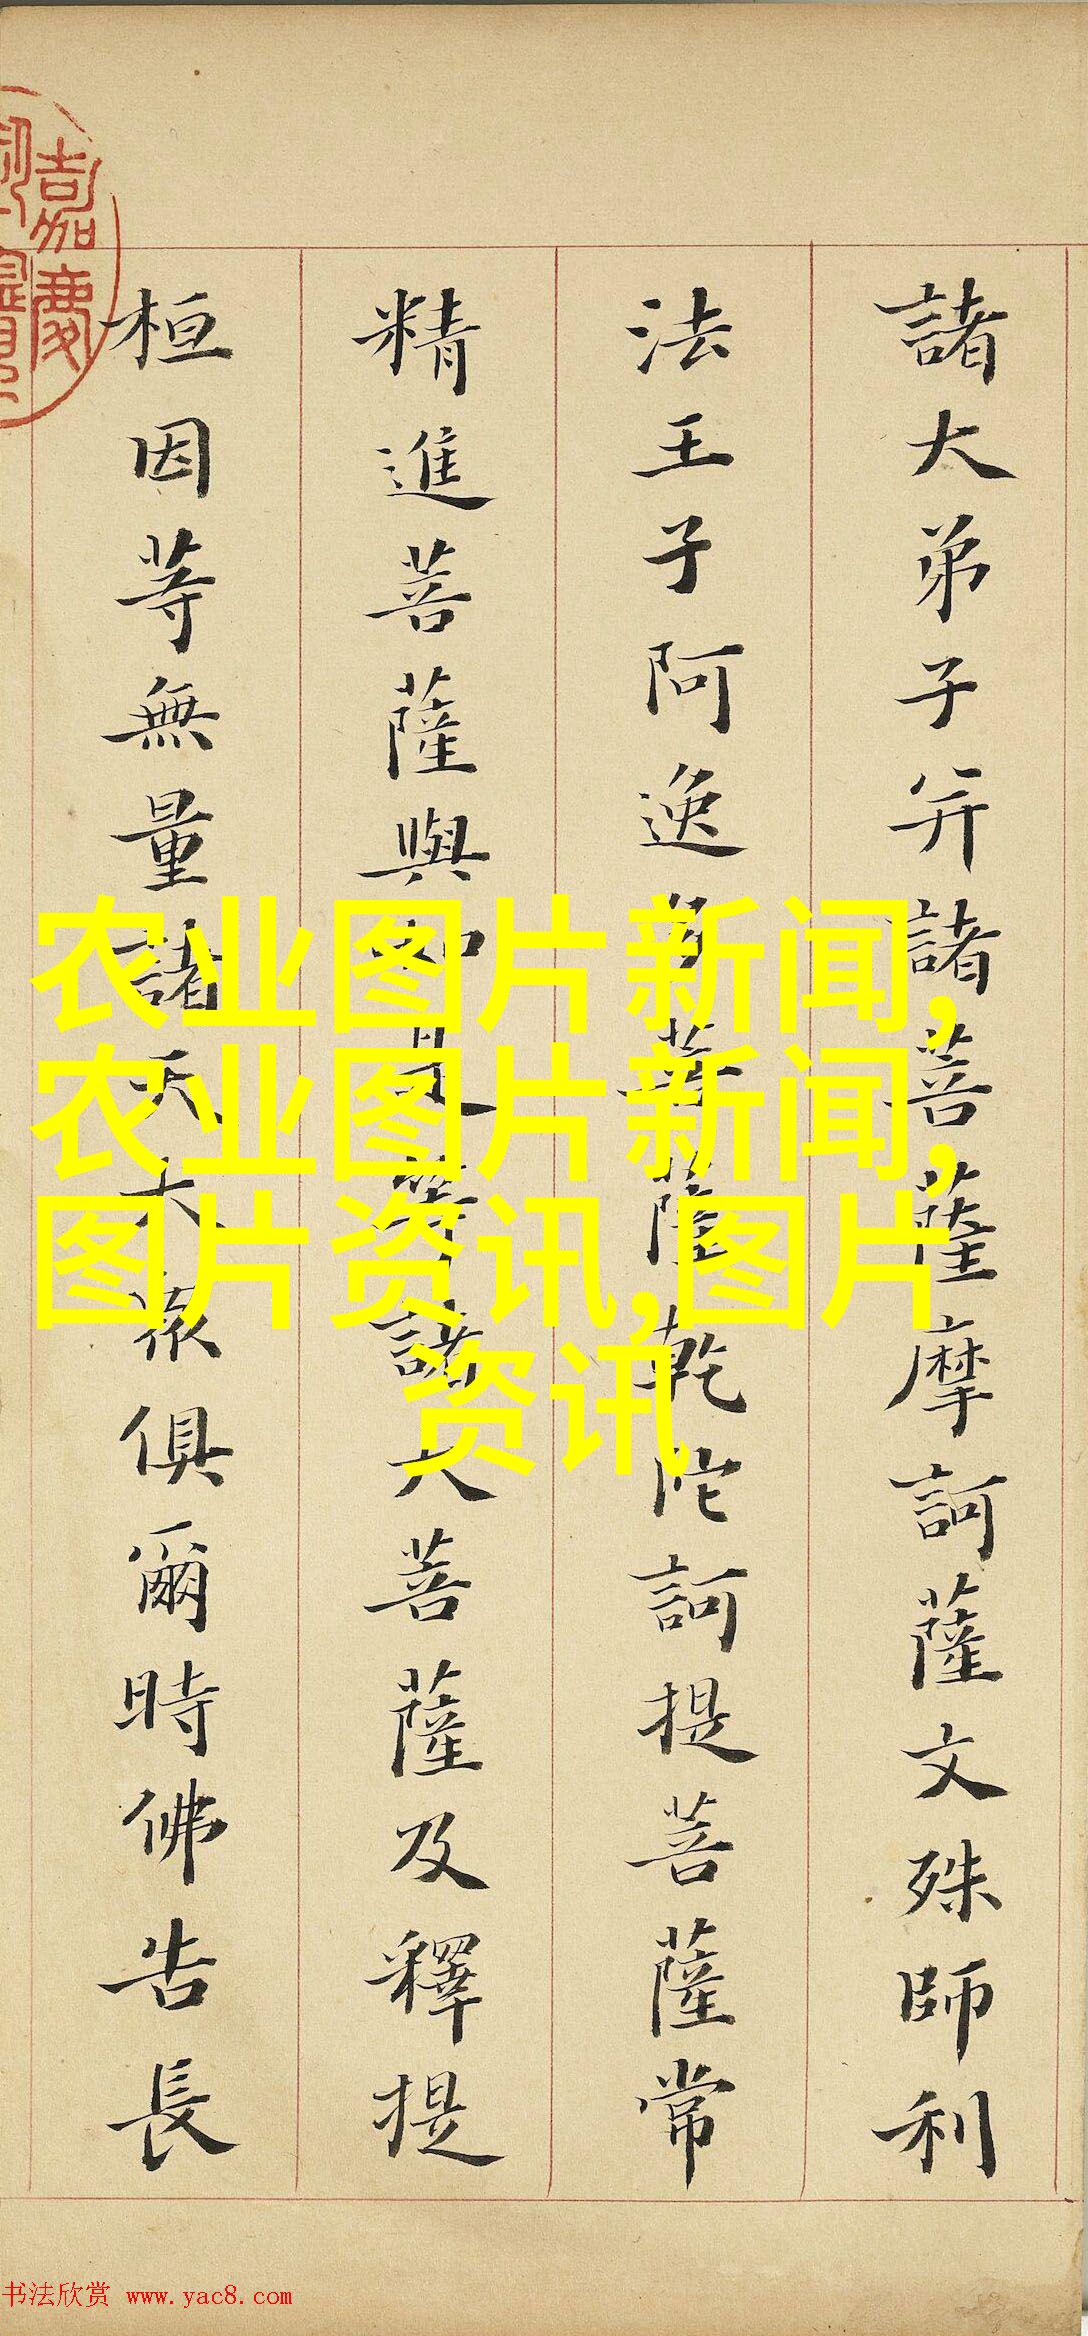 諸大弟子并諸菩薩摩訶薩文殊師利
法王子阿逸多菩薩乾陀訶提菩薩常
精進菩薩與如是等諸大菩薩及釋提
桓因等無量諸天大衆俱爾時佛告長
嘉慶
农业图片新闻,
农业图片新闻,
图片资讯,图片
资讯
书法欣赏 www.yac8.com